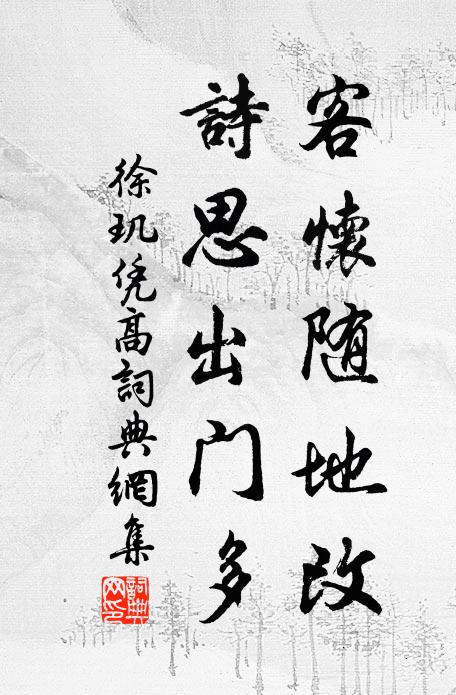 客懷随地改
詩思出门多
徐玑凭高詞典網集
詞典網印